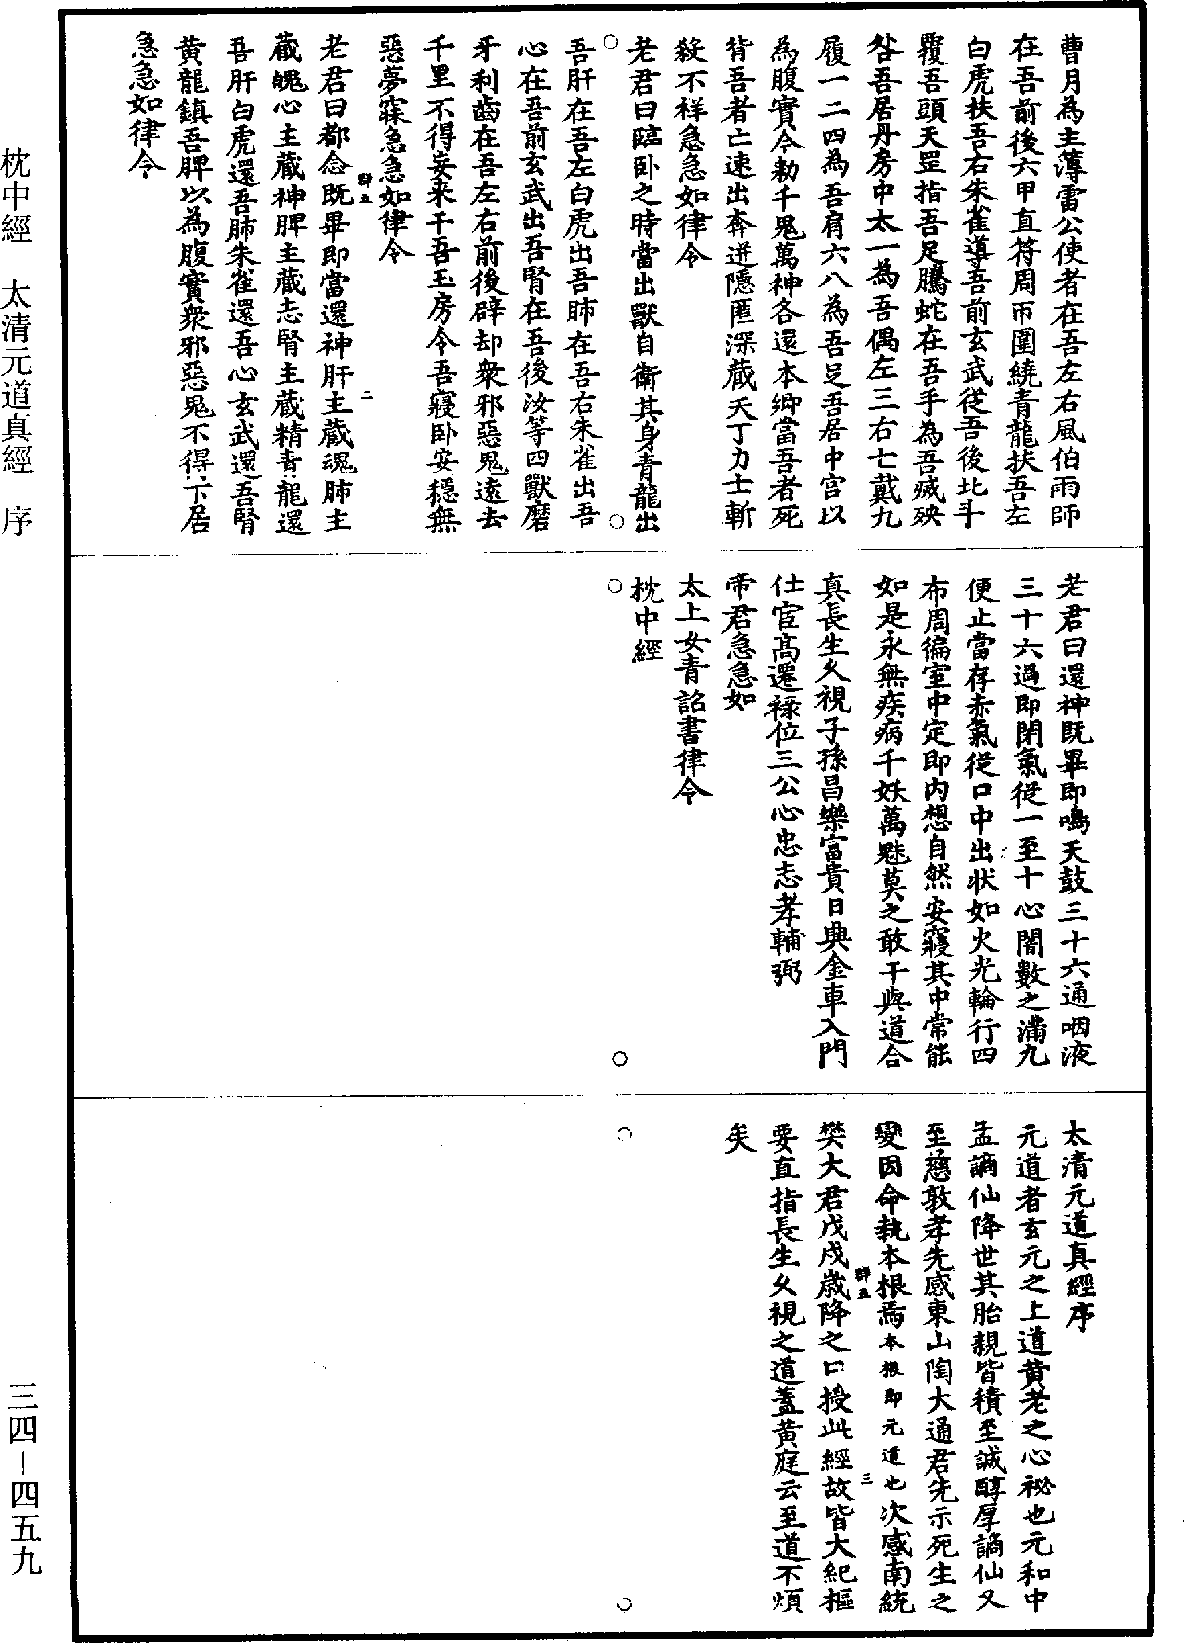 曹月為主薄雷公使者在吾左右風伯雨師
在吾前後六甲直符周帀圍繞青龍扶吾左
白虎扶吾右朱雀導吾前玄武從吾後北斗
覆吾頭天罡指吾足騰蛇在吾手為吾滅殃
咎吾居丹房中太一為吾偶左三右七戴九
履一二四為吾肩六八為吾足吾居中宮以
為腹實今勑千鬼萬神各還本鄉當吾者死
背吾者亡速出奔迸隱匿深藏天丁力士斬
殺不祥急急如律令
老君曰臨卧之時當出獸自衛其身青龍出
吾肝在吾左白虎出吾肺在吾右朱雀出吾
心在吾前玄武出吾腎在吾後汝等四獸磨
牙利齒在吾左右前後辟却衆邪惡鬼遠去
千里不得妄来干吾玉房令吾寢卧安穩無
惡夢寐急急如律令
群五
二
老君曰都念既畢即當還神肝主藏魂肺主
藏魄心主藏神脾主藏志腎主藏精青龍還
吾肝白虎還吾肺朱雀還吾心玄武還吾腎
黄龍鎮吾脾以為腹實衆邪惡鬼不得下居
急急如律令
老君曰還神既畢即鳴天鼓三十六通咽液
三十六過即閉氣從一至十心闇數之滿九
便止當存赤氣從口中出狀如火光輪行四
布周徧室中定即内想自然安寢其中常能
如是永無疾病千妖萬魅莫之敢干與道合
真長生久視子孫昌樂富貴日興金車入門
仕宦高遷祿位三公心忠志孝輔弼
帝君急急如
太上女青詔書律令
枕中經
太清元道真經序
元道者玄元之上道黄老之心祕也元和中
孟謫仙降世其胎親皆積至誠醇厚謫仙又
至慈敦孝先感東山陶大通君先示死生之
變因命執本根焉本根即元道也次感南統
群五
三
樊大君戊戍歲降之口授此經故皆大紀樞
要直指長生久視之道蓋黄庭云至道不煩
矣
枕中經 太清元道真經 序
三四－四五九